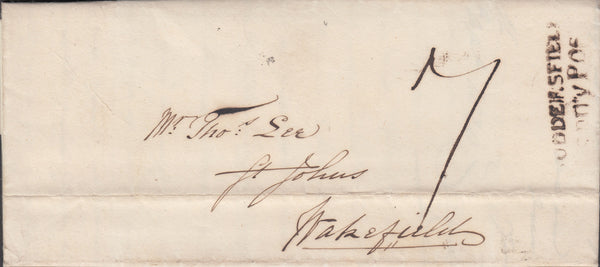 Mr. Thos. Lee
St Johns
Wakefield
7
UDDERSFIEL